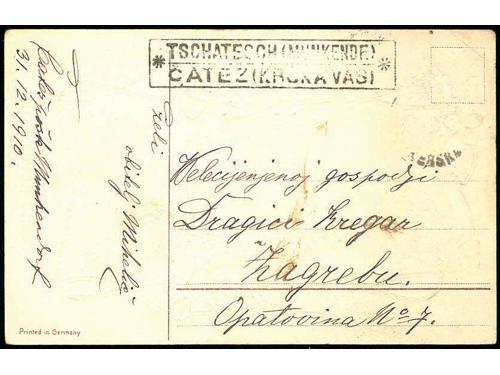 * TSCHATESCH (MUNKENDF) *
* ČATEŽ (KRŠKA VAS) *
31. 12. 1910.
želi
obitelj Mihelić
Velecijenjenoj gospodji
Dragici Kregar
Zagrebu.
Opatovina No 7.
Printed in Germany